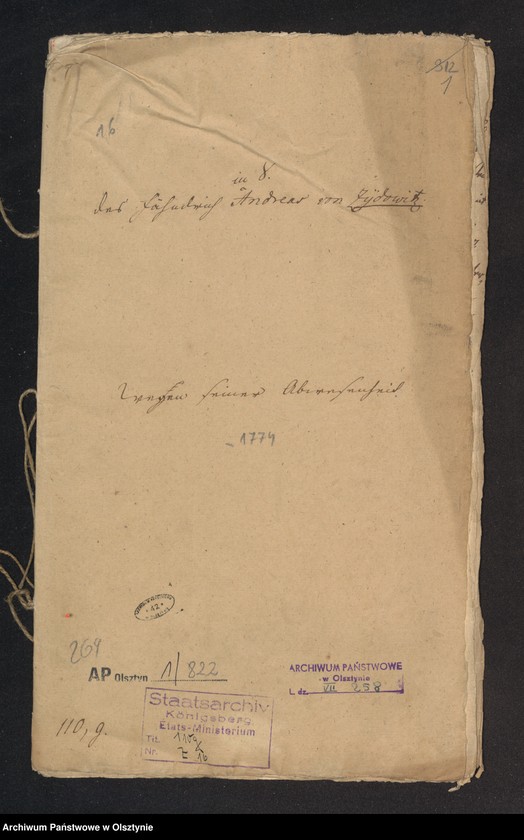 812
1
16
in S.
des Fähndrich Andreas von Zÿdowitz.
Wegen seiner Abwesenheit
1774
12
269
AP Olsztyn 1/822
ARCHIWUM PAŃSTWOWE
w Olsztynie
L. dz. VII 258
Staatsarchiv
Königsberg
Etats-Ministerium
Tit.
Nr. Z 16
110, g.
Archiwum Państwowe w Olsztynie